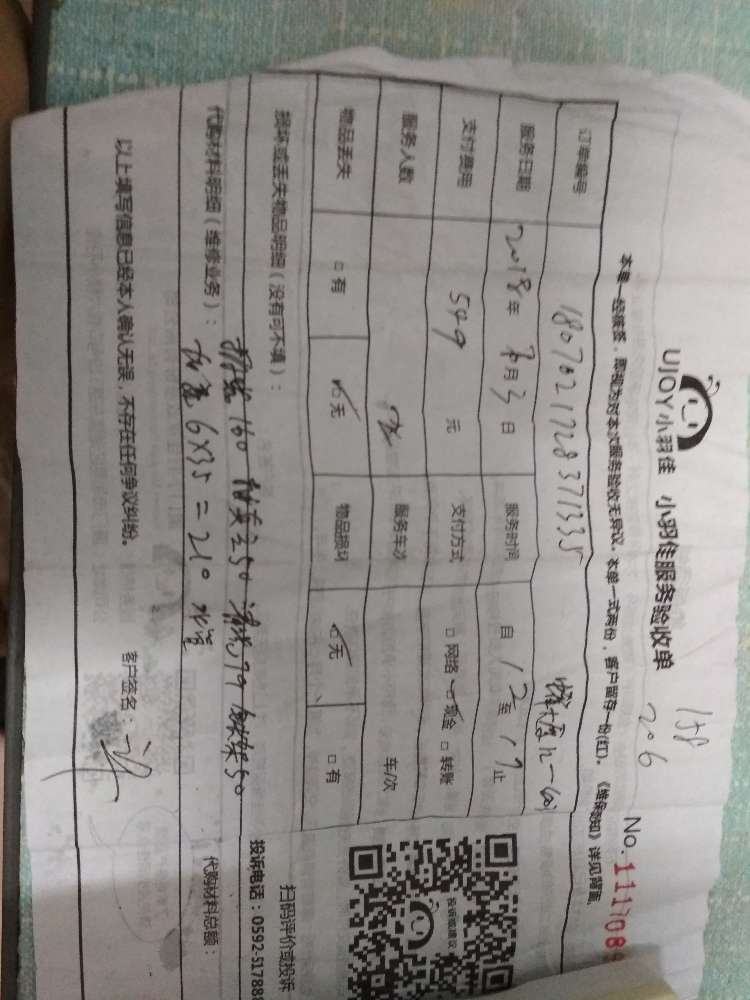 158
206
UJOY小羽佳 小羽佳服务验收单
No.
本单一经核签，即视为对本次服务验收无异议。本单一式两份，客户留存一份(红)。《维保须知》详见背面
订单编号 1807021728371335
服务日期 2018年 月3日 服务时间 自12至17止
支付费用 549元 支付方式 □网络 现金 □转账
服务人数 服务车次 车/次
物品丢失 □有 ☑无 物品损坏 ☑无 □有
损坏或丢失物品明细（没有可不填）：
代购材料明细（维修业务）： 160 50 79 50
6×35=210
代购材料总额：
以上填写信息已经本人确认无误，不存在任何争议纠纷。 客户签名：
投诉或建议
扫码评价或投诉
投诉电话：0592-51788